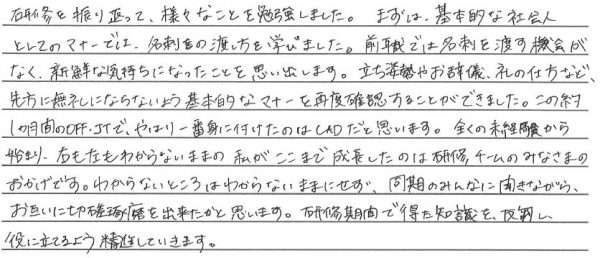 研修を振り返って、様々なことを勉強しました。まずは、基本的な社会人
としてのマナーでは、名刺の渡し方を学びました。前職では名刺を渡す機会が
なく、新鮮な気持ちになったことを思い出します。立ち姿勢やお辞儀、礼の仕方など、
先方に無礼にならないよう基本的なマナーを再度確認することができました。この約
1ヶ月間のOFF-JTで、やはり一番身に付けたのはCADだと思います。全くの未経験から
始まり、右も左もわからないままの私がここまで成長したのは研修チームのみなさまの
おかげです。わからないところはわからないままにせず、同期のみんなに聞きながら、
お互いに切磋琢磨を出来たかと思います。研修期間で得た知識を、復習し、
役に立てるよう精進していきます。